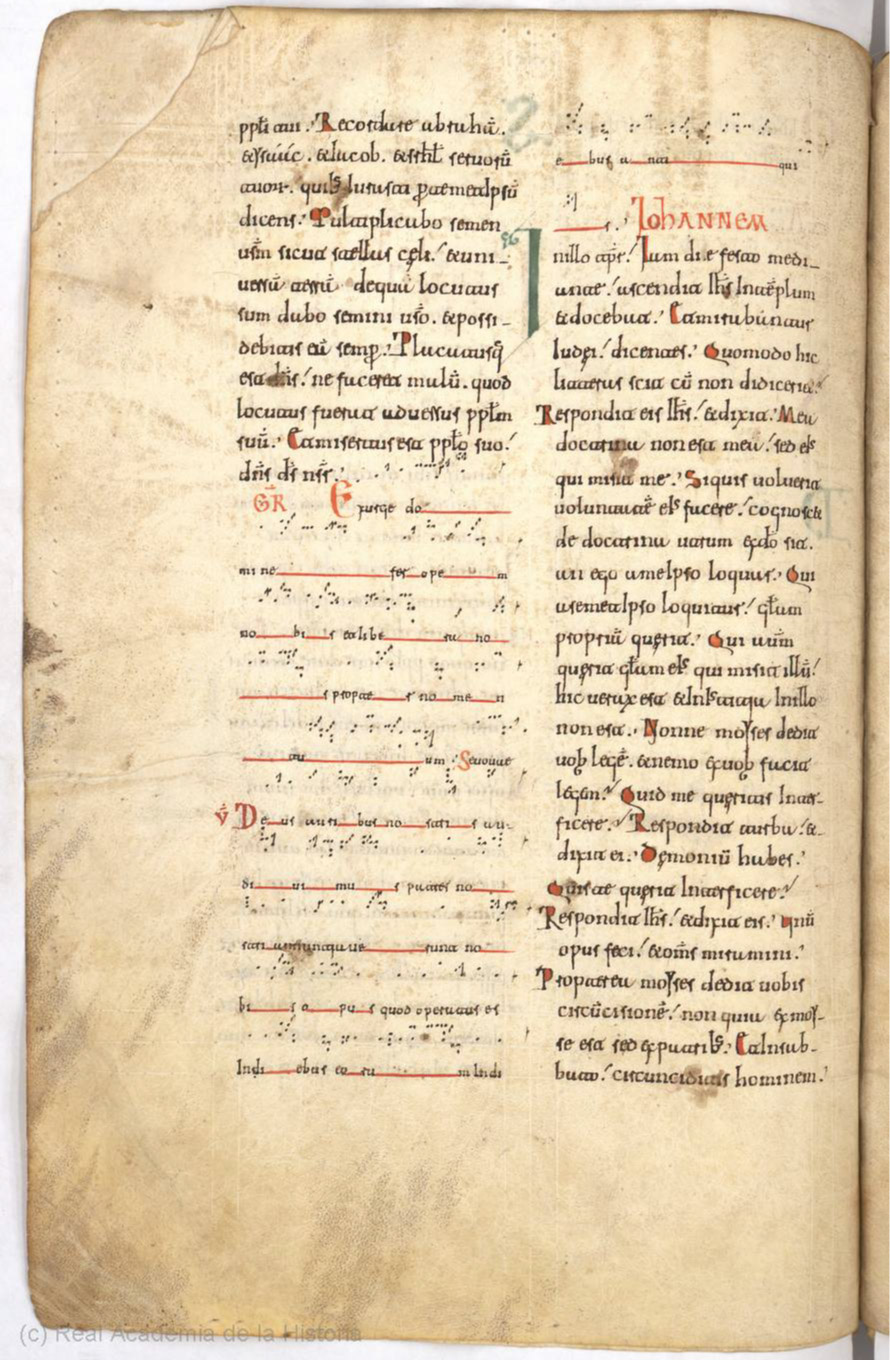 ppli tui. Recordare abrahā.
&ysaac. &iacob. &isrhl seruorū
tuorū. quibs iurasti p temetipsū
dicens. Multiplicabo semen
urm sicut stellas cęli. &uni-
uersā terrā dequa locutus
sum dabo semini uro. &possi-
debitis eā semp. Placatusq
est dns. ne faceret malū. quod
locutus fuerat aduersus pplm
suū. Et misertus est pplo suo.
dns ds nsr.
GR Exurge do
mi ne fer ope m
no bi s et libe ra no
s propte r no me n
tu um Seuouae
V De us auri bus no stri s au-
di ui mu s patres no
stri annunti aue runt no
bi s o pu s quod operatus es
Indi ebus eo ru m Indi
e bus a nti qui
s. IOHANNEM
Inillo tprs. Iam die festo medi-
ante. ascendit Ihs Intēplum
&docebat. Et mirabantur
Iudęi. dicentes. Quomodo hic
litteras scit cū non didicerit.
Respondit eis Ihs. &dixit. Mea
doctrina non est mea. sed eis
qui misit me. Siquis uoluerit
uoluntatē eis facere. cognosc&
de doctrina utrum exdo sit.
an ego ameipso loquar. Qui
asemetipso loquitur. glam
propriā querit. Qui autm
querit glam eis qui misit illū.
hic uerax est &Iniustitia Inillo
non est. Nonne moyses dedit
uob legē. &nemo exuob facit
legem. Quid me queritis Inter-
ficere. Respondit turba. &
dixit ei. Demoniū habes.
Quis te querit Interficere.
Respondit Ihs. &dixit eis. unū
opus feci. &oms miramini.
Propterea moyses dedit uobis
circūcisionē. non quia exmoy-
se est sed expatribs. Et Insab-
bato. circunciditis hominem.
(c) Real Academia de la Historia